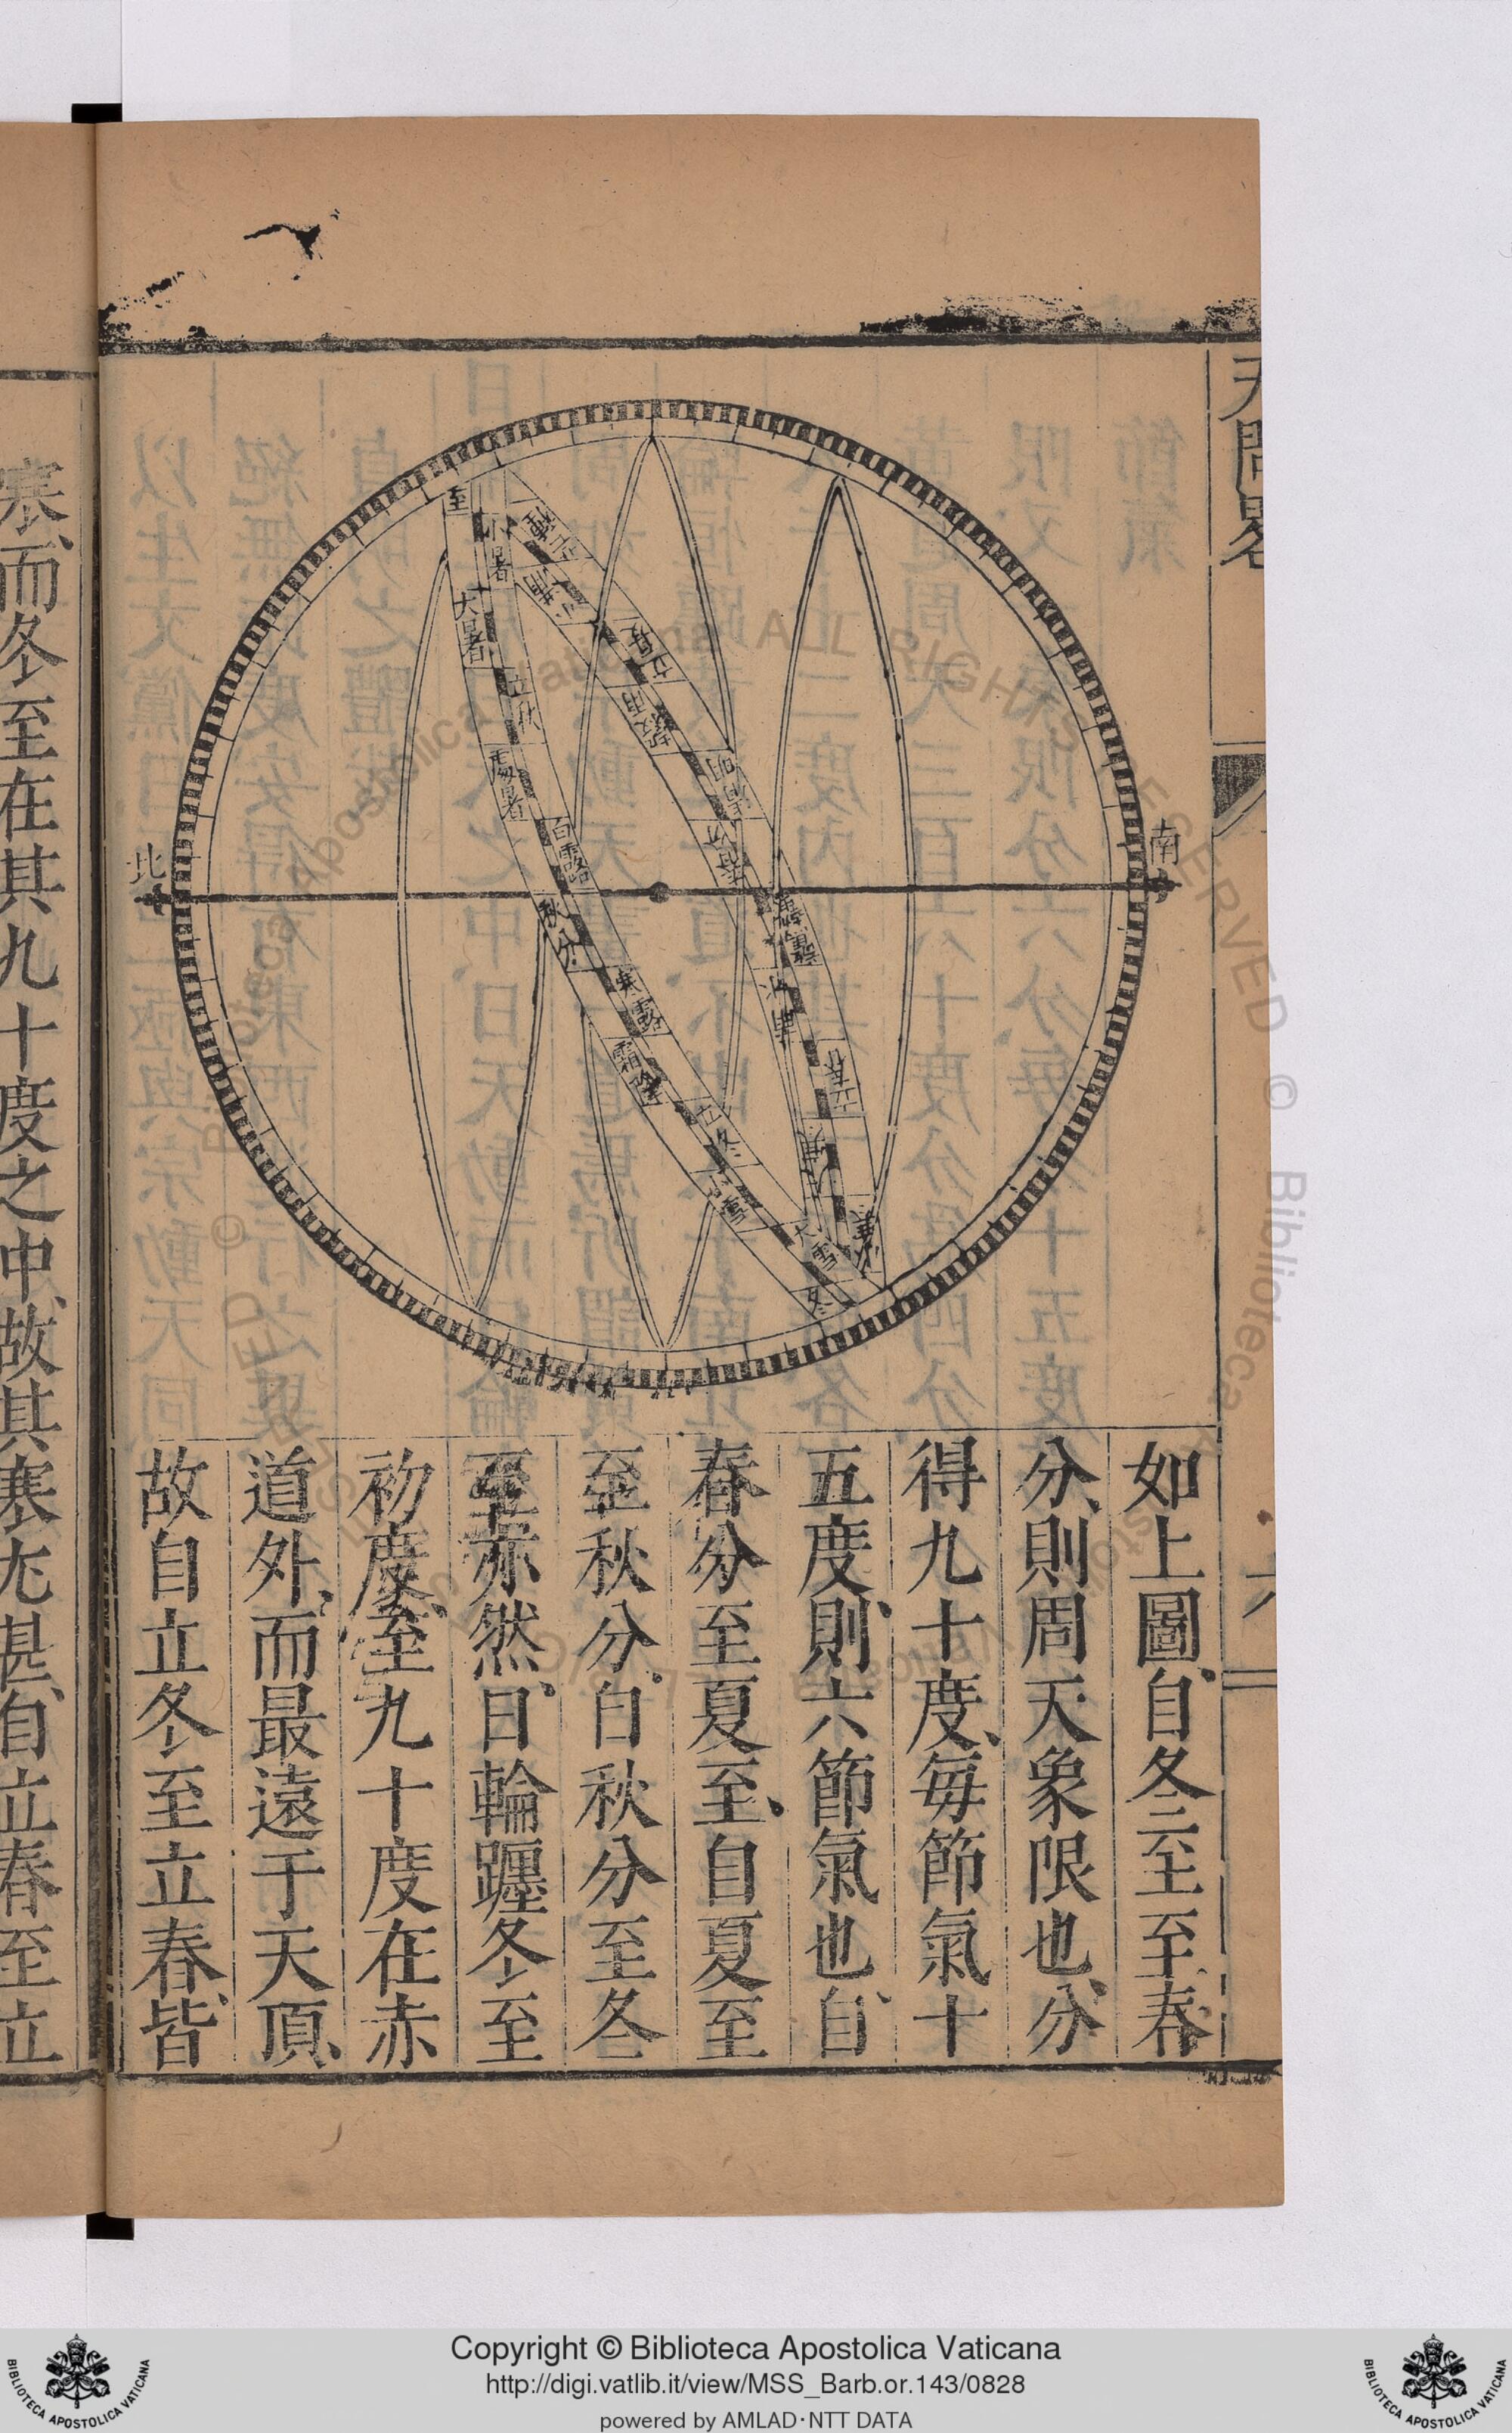 天問略
六
南
北
至
小暑
大暑
立秋
處暑
白露
秋分
寒露
霜降
立冬
小雪
大雪
冬
至
小寒
大寒
立春
雨水
驚蟄
春分
清明
穀雨
立夏
小滿
芒種
如上圖自冬至至春
分、則周天象限也、分
得九十度、每節氣十
五度、則六節氣也、自
春分至夏至、自夏至
至秋分、自秋分至冬
至亦然、日輪躔冬至
初度、至九十度在赤
道外、而最遠于天頂、
故自立冬至立春、皆
寒、而冬至在其九十度之中、故其寒尤甚、自立春至立
Copyright © Biblioteca Apostolica Vaticana
http://digi.vatlib.it/view/MSS_Barb.or.143/0828
powered by AMLAD·NTT DATA
BIBLIOTECA APOSTOLICA VATICANA
BIBLIOTECA APOSTOLICA VATICANA